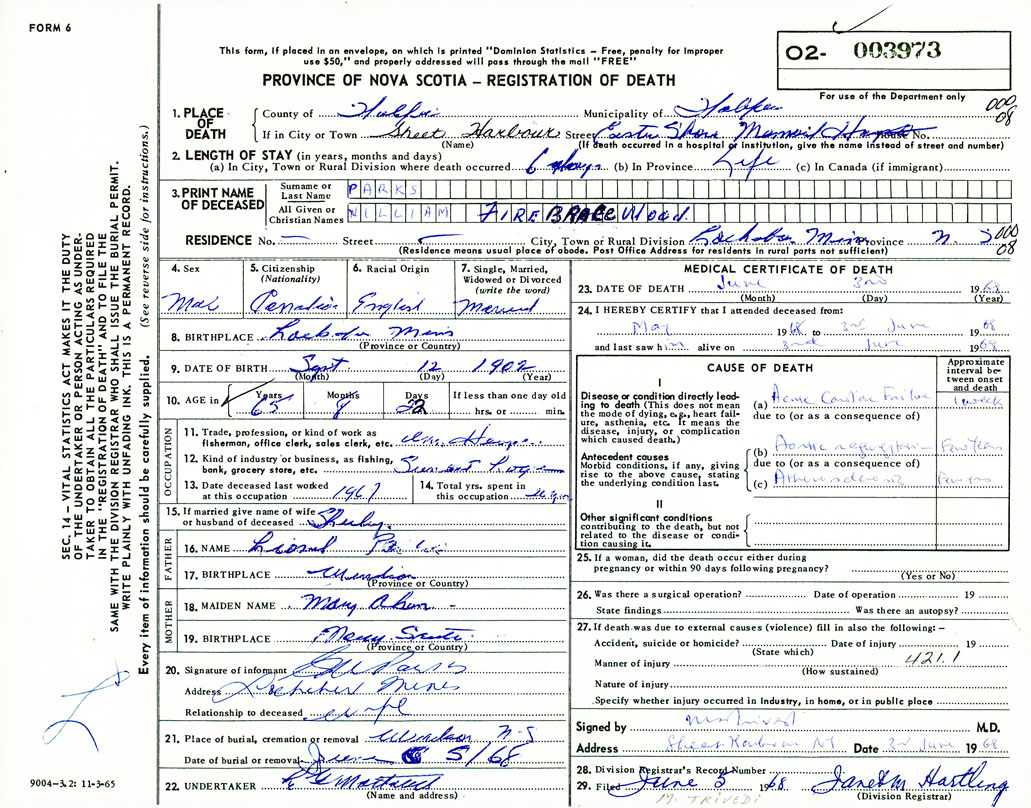 FORM 6
This form, if placed in an envelope, on which is printed "Dominion Statistics – Free, penalty for improper
use $50," and properly addressed will pass through the mail "FREE"
PROVINCE OF NOVA SCOTIA – REGISTRATION OF DEATH
O2- 003973
For use of the Department only
SEC, 14 – VITAL STATISTICS ACT MAKES IT THE DUTY
OF THE UNDERTAKER OR PERSON ACTING AS UNDER-
TAKER TO OBTAIN ALL THE PARTICULARS REQUIRED
IN THE "REGISTRATION OF DEATH" AND TO FILE THE
SAME WITH THE DIVISION REGISTRAR WHO SHALL ISSUE THE BURIAL PERMIT.
WRITE PLAINLY WITH UNFADING INK. THIS IS A PERMANENT RECORD.
Every item of information should be carefully supplied. (See reverse side for instructions.)
1. PLACE OF DEATH
County of Halifax Municipality of Halifax
000
08
If in City or Town Sheet Harbour Street Eastern Shore Memorial House No.
(Name) (If death occurred in a hospital or institution, give the name instead of street and number)
2. LENGTH OF STAY (in years, months and days)
(a) In City, Town or Rural Division where death occurred 6 days (b) In Province Life (c) In Canada (if immigrant)
3. PRINT NAME OF DECEASED
Surname or Last Name PARKS
All Given or Christian Names WILLIAM FIREBRACE Wood
RESIDENCE No. Street City, Town or Rural Division Mines Province N. S
000
08
(Residence means usual place of abode. Post Office Address for residents in rural parts not sufficient)
4. Sex
5. Citizenship
(Nationality)
6. Racial Origin
7. Single, Married,
Widowed or Divorced
(write the word)
Male Canadian English Married
8. BIRTHPLACE Mines
(Province or Country)
9. DATE OF BIRTH Sept 12 1902
(Month) (Day) (Year)
10. AGE in Years Months Days If less than one day old
65 8 22 hrs. or min.
OCCUPATION
11. Trade, profession, or kind of work as
fisherman, office clerk, sales clerk, etc.
12. Kind of industry or business, as fishing,
bank, grocery store, etc.
13. Date deceased last worked
at this occupation 1967
14. Total yrs. spent in
this occupation
15. If married give name of wife
or husband of deceased
FATHER
16. NAME
17. BIRTHPLACE Windsor
(Province or Country)
MOTHER
18. MAIDEN NAME Mary
19. BIRTHPLACE Scotia
(Province or Country)
20. Signature of informant
Address Mines
Relationship to deceased
21. Place of burial, cremation or removal Windsor N-S
Date of burial or removal June 5/68
22. UNDERTAKER
(Name and address)
9004–3.2: 11-3-65
MEDICAL CERTIFICATE OF DEATH
23. DATE OF DEATH June 3rd 1968
(Month) (Day) (Year)
24. I HEREBY CERTIFY that I attended deceased from:
May 1968 to 3rd June 1968
and last saw him alive on 3rd June 1968
CAUSE OF DEATH
Approximate
interval be-
tween onset
and death
I
Disease or condition directly lead-
ing to death (This does not
mean the mode of dying, e.g., heart fail-
ure, asthenia, etc. It means the
disease, injury, or complication
which caused death.)
(a) Acute Cardiac Failure 1 week
due to (or as a consequence of)
Antecedent causes
Morbid conditions, if any, giving
rise to the above cause, stating
the underlying condition last.
(b) Aortic regurgitation Few Years
due to (or as a consequence of)
(c) Atherosclerosis Few yrs
II
Other significant conditions
contributing to the death, but not
related to the disease or condi-
tion causing it.
25. If a woman, did the death occur either during
pregnancy or within 90 days following pregnancy?
(Yes or No)
26. Was there a surgical operation? Date of operation 19
State findings Was there an autopsy?
27. If death was due to external causes (violence) fill in also the following: –
Accident, suicide or homicide? Date of injury 19
(State which)
Manner of injury 421.1
(How sustained)
Nature of injury
Specify whether injury occurred in Industry, in home, or in public place
Signed by M Trivedi M.D.
Address Sheet Harbour NS Date 3rd June 1968
28. Division Registrar's Record Number
29. Filed June 5 1968 Janet M Hartling
(Division Registrar)
M. TRIVEDI